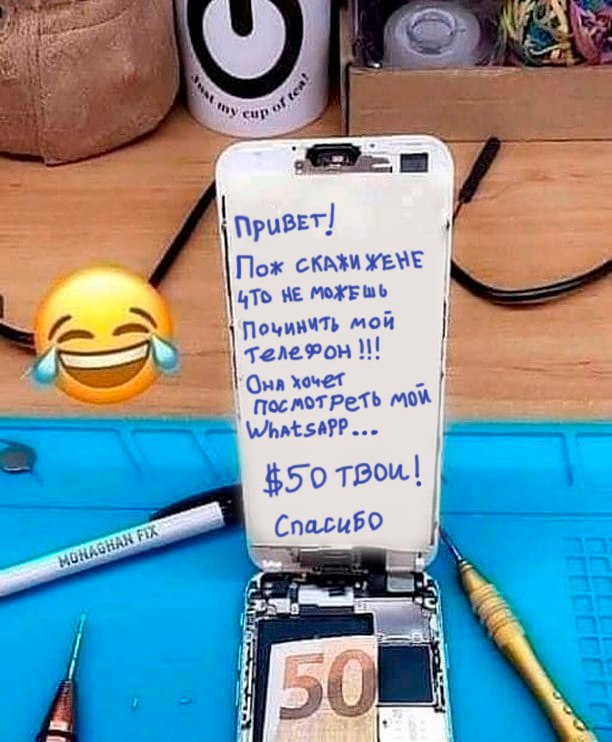 Just my cup of tea!
Привет!
Пож скажи жене
что не можешь
Починить мой
телефон!!!
Она хочет
посмотреть мой
WhatsApp...
$50 твои!
Спасибо
MONAGHAN FIX
50